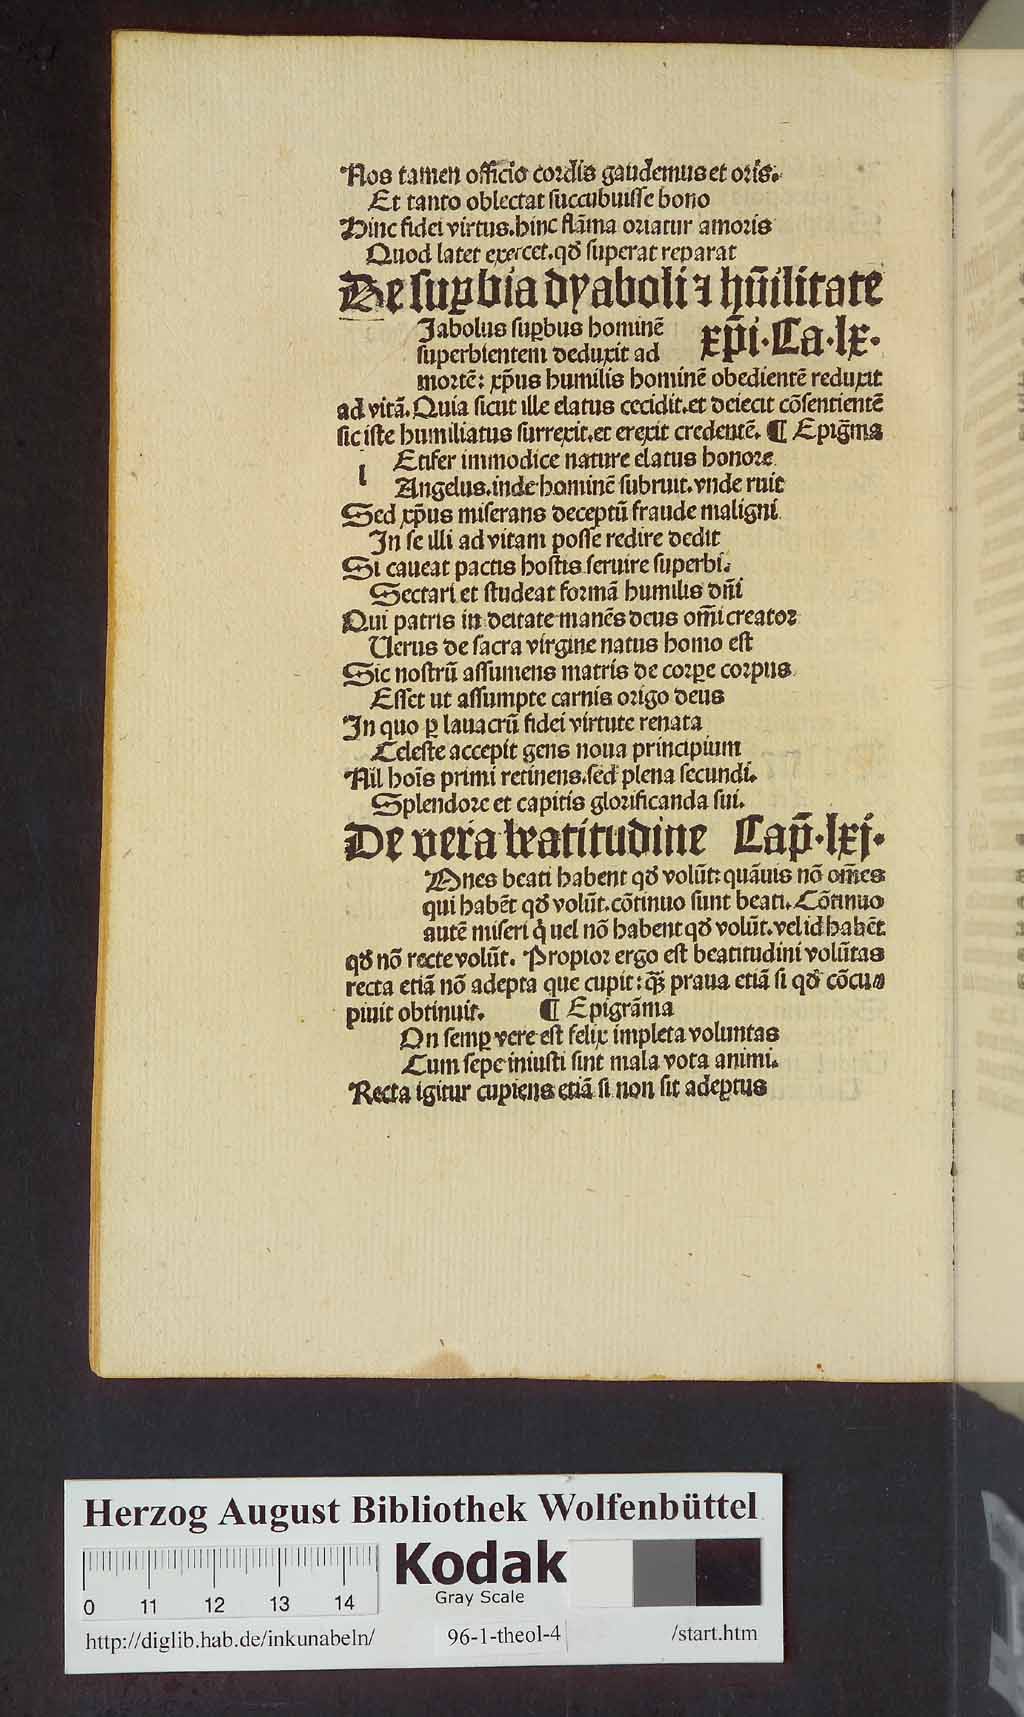 Nos tamen officio cordis gaudemus et oris.
Et tanto oblectat succubuisse bono
Hinc fidei virtus. hinc flāma oriatur amoris
Quod latet exercet. qđ superat reparat
De suꝑbia dyaboli ⁊ hūilitate
xp̄i. Ca. lx.
Jabolus suꝑbus hominē
superbientem deduxit ad
mortē: xp̄us humilis hominē obedientē reduxit
ad vitā. Quia sicut ille elatus cecidit. et deiecit cōsentientē
sic iste humiliatus surrexit. et erexit credentē. ¶ Epigr̄ma
l Etifer immodice nature elatus honore
Angelus. inde hominē subruit. vnde ruit
Sed xp̄us miserans deceptū fraude maligni
In se illi ad vitam posse redire dedit
Si caueat pactis hostis seruire superbi.
Sectari et studeat formā humilis dn̄i
Qui patris in deitate manēs deus om̄i creator
Uerus de sacra virgine natus homo est
Sic nostrū assumens matris de corꝑe corpus
Esset ut assumpte carnis origo deus
In quo ꝑ lauacrū fidei virtute renata
Celeste accepit gens noua principium
Nil hoīs primi retinens. sed plena secundi.
Splendore et capitis glorificanda sui.
De vera beatitudine Cap̄. lxj.
Mnes beati habent qđ volūt: quāuis nō om̄es
qui habēt qđ volūt. cōtinuo sunt beati. Cōtinuo
autē miseri q̇ uel nō habent qđ volūt. vel id habēt
qđ nō recte volūt. Propior ergo est beatitudini volūtas
recta etiā nō adepta que cupit: q̄ꝫ praua etiā si qđ cōcu
piuit obtinuit. ¶ Epigrāma
On semꝑ vere est felix impleta voluntas
Cum sepe iniusti sint mala vota animi.
Recta igitur cupiens etiā si non sit adeptus
Herzog August Bibliothek Wolfenbüttel
Kodak
Gray Scale
0 11 12 13 14
http://diglib.hab.de/inkunabeln/ 96-1-theol-4 /start.htm